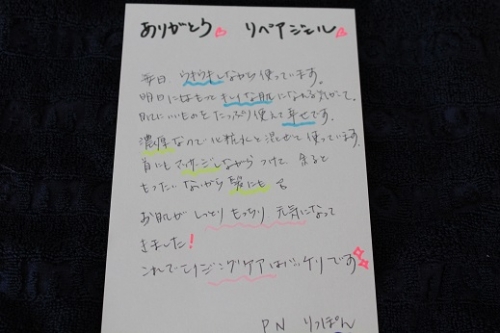 ありがとう リペアジェル
毎日 うきうきしながら使っています。
明日にはもっとキレイな肌になれる気がして。
肌にいいものをたっぷり使えて幸せです。
濃厚なので化粧水と混ぜて使っています。
首にもマッサージしながらつけて、余ると
もったいないから髪にも
お肌がしっとりもっちり元気になって
きました!
これでエイジングケアはバッチリです
P.N りつぽん